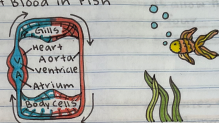 Blood in Fish
Gills
Heart
Aorta
V
Ventricle
A
Atrium
Body Cells